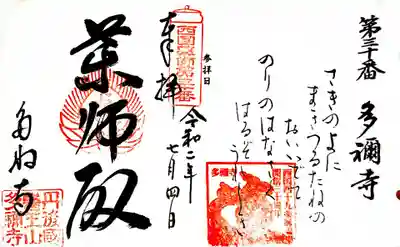 第三十番 多禰寺
さきのよに
まきつるたねの
おいいでて
のりのはなさく
はるぞうれしき
参拝日
令和二年
七月四日
奉拝
薬師殿
多祢寺
多禰寺
丹波國
醫王山
多禰寺